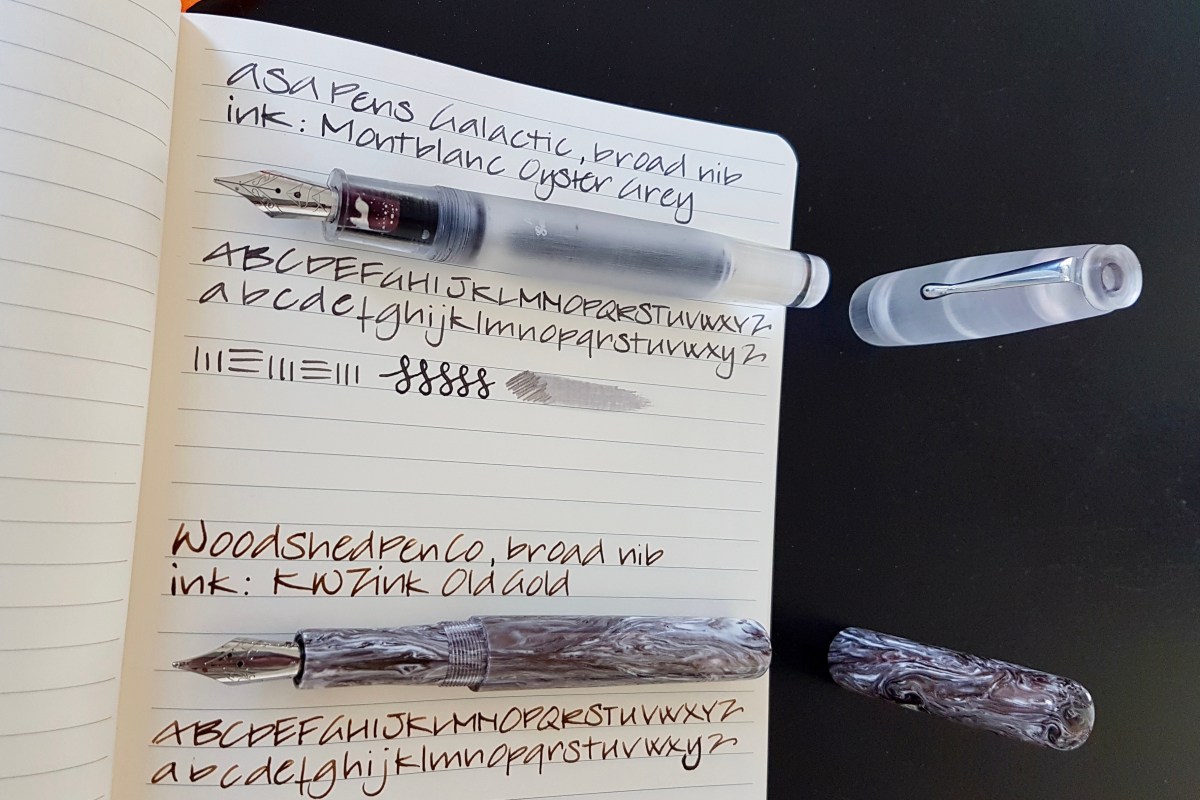 asa Pens Galactic, broad nib
ink: Montblanc Oyster Grey
ABCDEFGHIJKLMNOPQRSTUVWXYZ
abcdefghijklmnopqrstuvwxyz
WoodshedPenCo, broad nib
ink: KWZink Old Gold
ABCDEFGHIJKLMNOPQRSTUVWXYZ
abcdefghijklmnopqrstuvwxyz